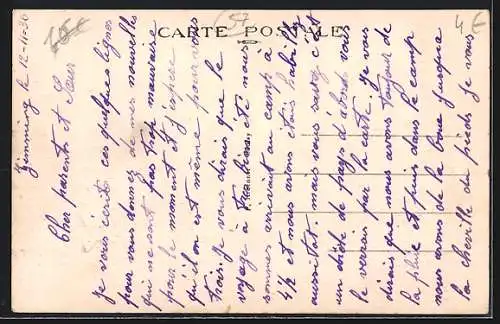 CARTE POSTALE
15€
(57)
4€
le 12-11-30
Cher parents et Sœur
je vous écris ces quelques lignes
pour vous donnez de mes nouvelles
qui ne sont pas trop mauvaise
pour le moment et j'espère
qu'il en est même pour vous
trois. je vous dirais que le
voyage à tres bien été nous
sommes arrivait au camp à
4½ et nous avons étais habillez
aussitot. mais vous savez c'est
un drole de pays d'abord vous
le verrais par la carte. je vous
dirais que nous avons toujour de
la pluie et puis dans le camp
nous avons de la boue jusque
la cheville du pieds je vous